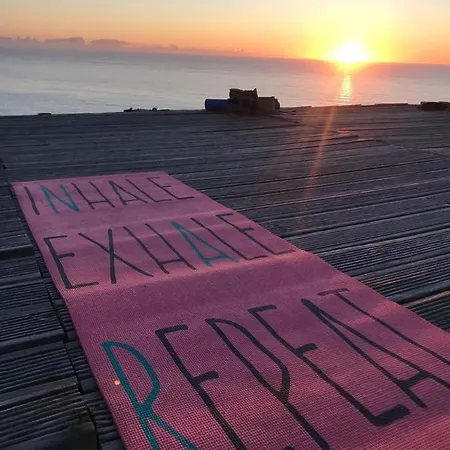 INHALE
EXHALE
REPEAT